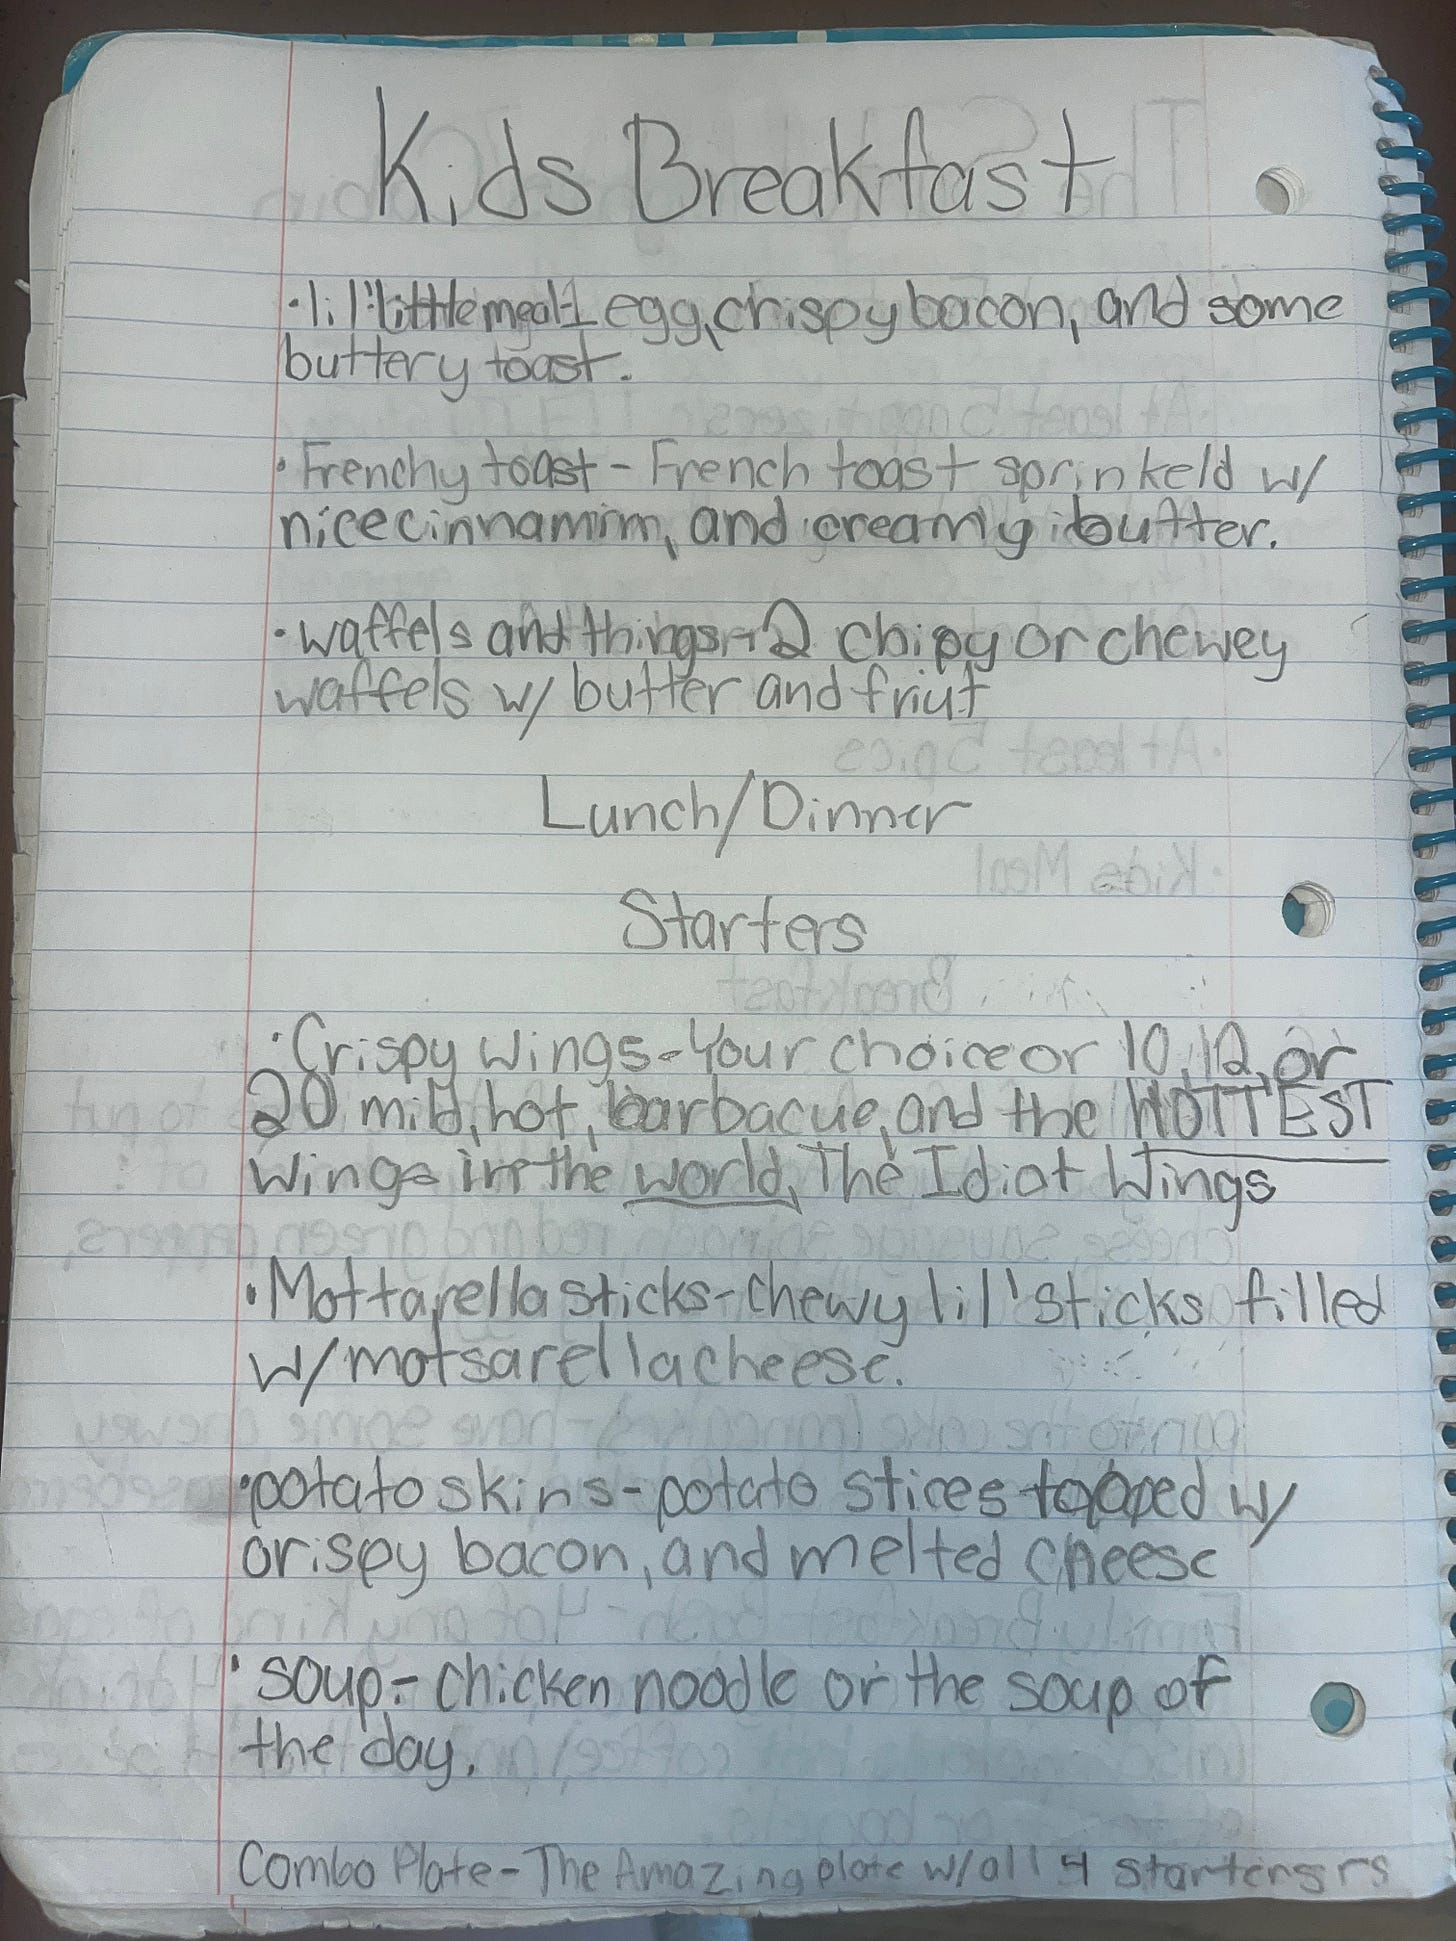 Kids Breakfast
· lil' little meal-1 egg, crispy bacon, and some
buttery toast.
· Frenchy toast - French toast sprinkeld w/
nice cinnamim, and creamy butter.
· waffels and things - 2 chipy or chewey
waffels w/ butter and friut
Lunch/Dinner
Starters
· Crispy Wings - Your choice or 10, 12, or
20 mild, hot, barbacue, and the HOTTEST
Wings in the world, The Idiot Wings
· Mottarella sticks - Chewy lil' sticks filled
w/ motsarella cheese.
· potato skins - potato stices topped w/
crispy bacon, and melted cheese
· soup - chicken noodle or the soup of
the day.
Combo Plate - The Amazing plate w/ all 4